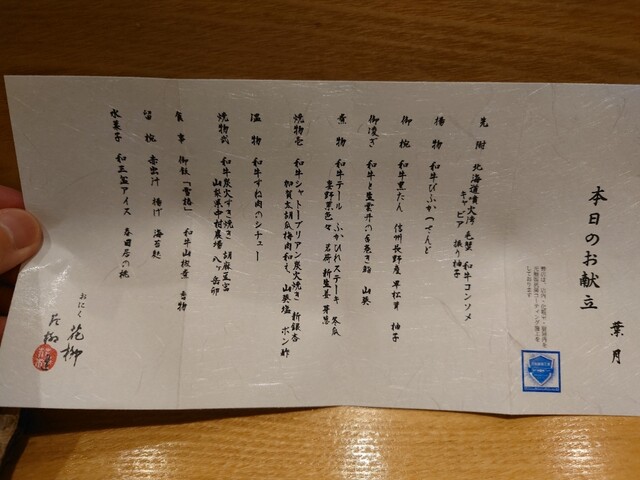 本日のお献立
葉月
先附 北海道噴火湾 毛蟹 和牛コンソメ
キャビア 振り柚子
揚物 和牛びふかつさんど
御椀 和牛黒たん 信州長野産 早松茸 柚子
御凌ぎ 和牛と生雲丹の手巻き鮨 山葵
煮物 和牛テール ふかひれステーキ 冬瓜
夏野菜色々 茗荷 新生姜 芽葱
焼物壱 和牛シャトーブリアン炭火焼き 新銀杏
加賀太胡瓜梅肉和え 山葵塩 ポン酢
温物 和牛すね肉のシチュー
焼物弐 和牛炭火すき焼き 胡麻豆富
山梨県中村農場 八ヶ岳卵
食事 御飯「雪椿」 和牛山椒煮 香物
留椀 赤出汁 揚げ 海苔麩
水菓子 和三盆アイス 春日居の桃
おにく 花柳
片柳